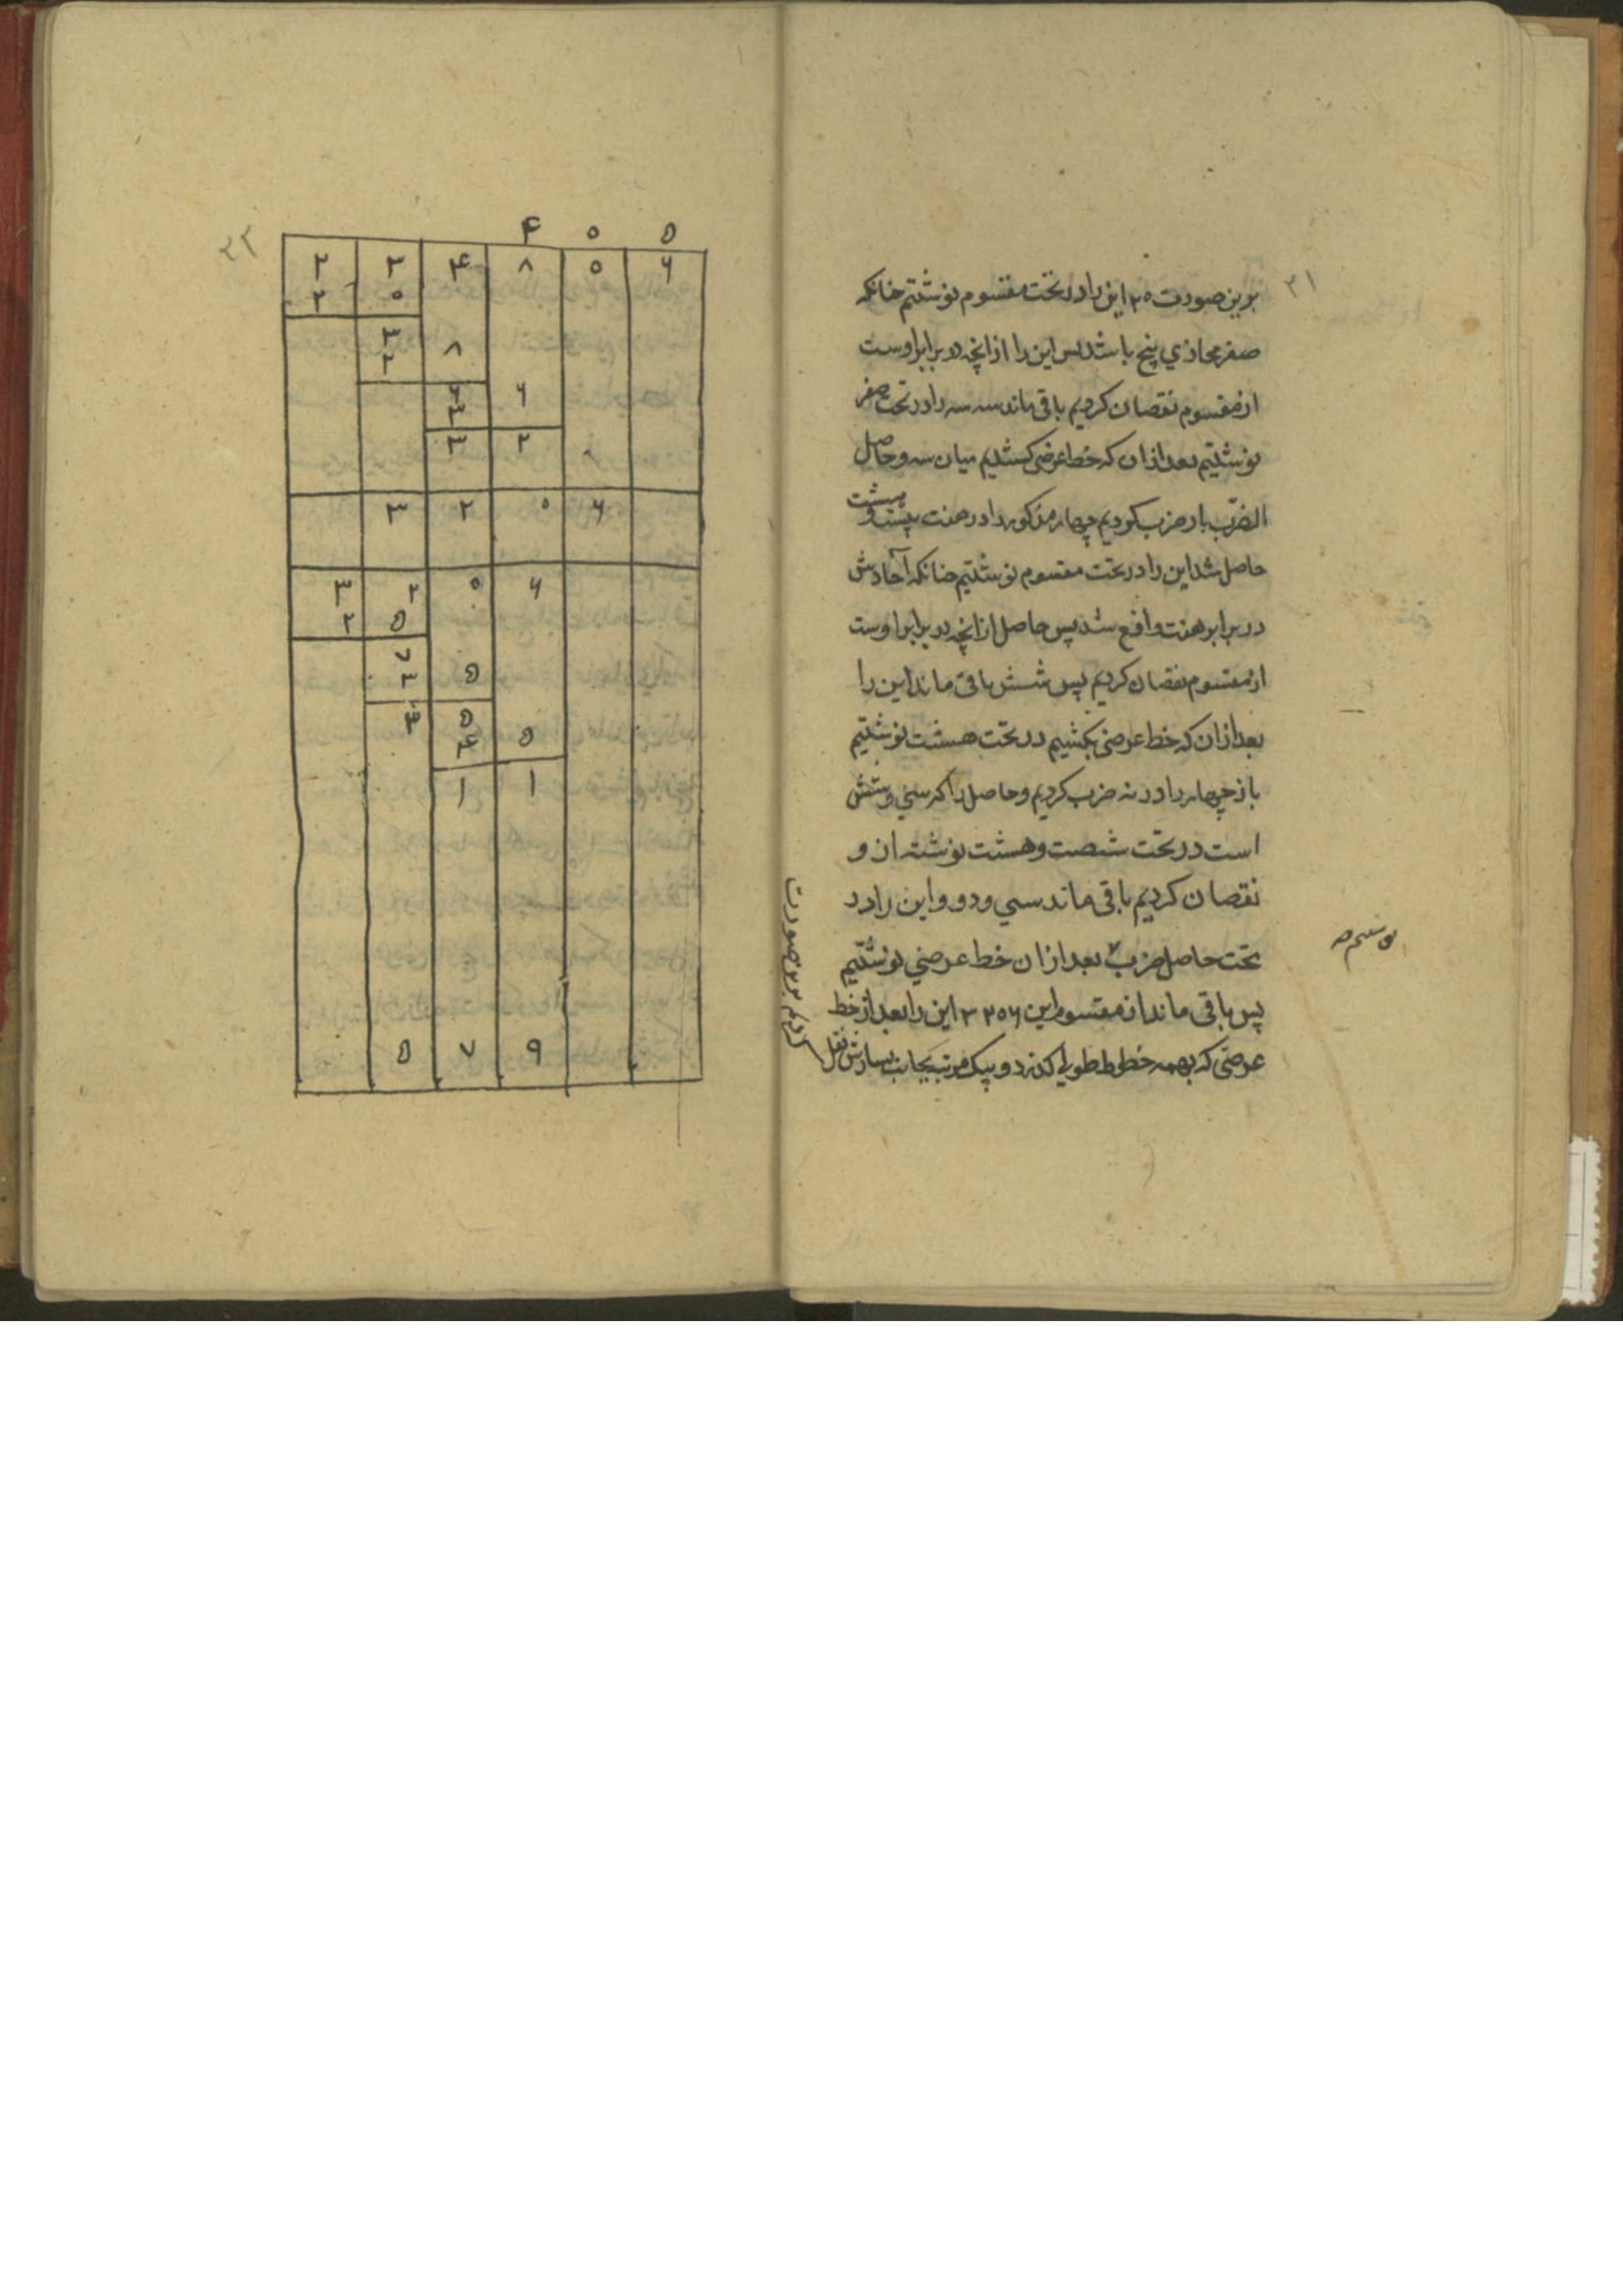 ۲۱
برین صورت ۲۰ این را در تحت مقسوم نوشتیم چنانکه
صفر محاذی پنج باشد پس این را از آنچه در برابر اوست
از مقسوم نقصان کردیم باقی ماند سه سه را در تحت صفر
نوشتیم بعد از ان که خط عرضی کشیدیم میان سه و حاصل
الضرب باز ضرب کردیم چهار مذکور را در هفت بیست و هشت
حاصل شد این را در تحت مقسوم نوشتیم چنانکه آحادش
در برابر هفت واقع شد پس حاصل از آنچه در برابر اوست
از مقسوم نقصان کردیم پس شش باقی ماند این را
بعد از ان که خط عرضی بکشیم در تحت هشت نوشتیم
باز چهار را در نه ضرب کردیم و حاصل را که سی و شش
است در تحت شصت و هشت نوشته از و
نقصان کردیم باقی ماند سی و دو و این را در
تحت حاصل ضرب بعد از ان خط عرضی نوشتیم
پس باقی ماند از مقسوم این ۳۲۰۶ این را بعد از خط
عرضی که بهمه خطوط طولی گذرد و بیک مرتبه بجانب یسارش نقل
کردیم برین صورت
۲۲
۴ ۰ ۵
۲ ۳ ۴ ۸ ۰ ۶
۲ ۰
۳
۲ ۸
۶ ۶
۳
۳ ۲
۳ ۲ ۰ ۶
۳ ۲ ۰ ۶
۲ ۵
۷
۳ ۵
۳ ۵
۴ ۵
۱ ۱
۵ ۷ ۹